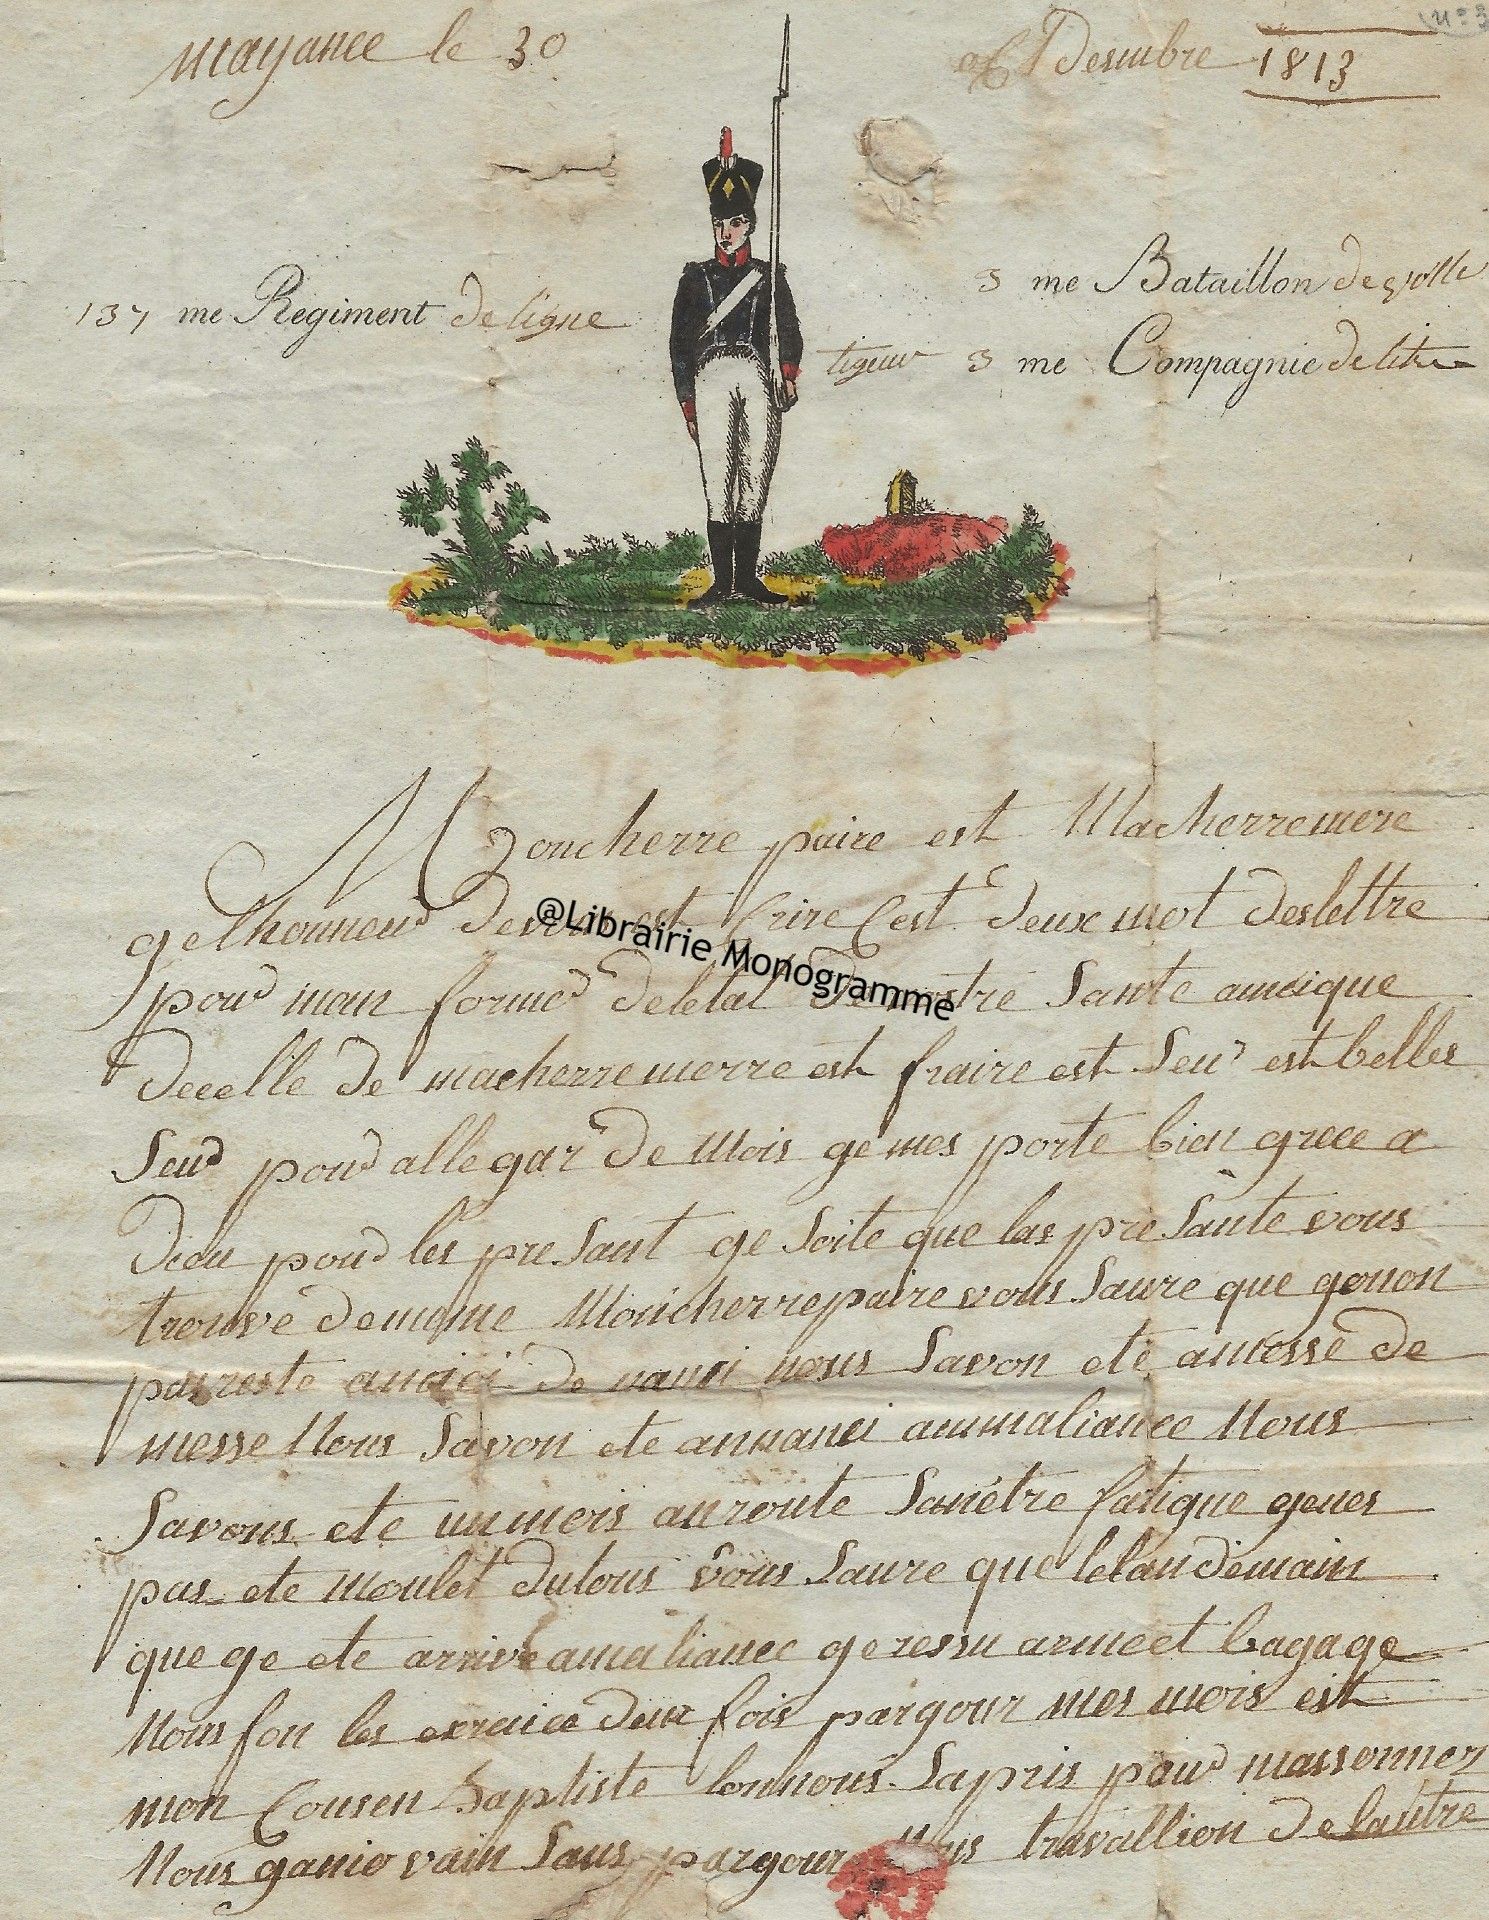 Mayance le 30 Desmbre 1813
n=3
137 me Regiment de ligne
3 me Bataillon de volti
tigeur 3 me Compagnie de
Moncherre paire est Macherremere
ge lhonneur de est Crire Cest deux mot deslettre
pour man former deletat de vostre Sante
decelle de macherremerre est fraire est Seur est belles
Seur pour allegar de Mois ge mes porte bien grece a
dieu pour les pre Sant ge Soite que las pre Sante vous
trouve dememe Moncherrepaire vous Saure que genon
pas reste de nanci nous Savon ete amesse de
messe Nous Savon ete annanci ammaliance Nous
Savons ete unmois anroute Sanétre fatigue genes
pas ete moulet dutous Vous Saure que lelandemain
que ge ete arrive amaliance geressu armeet bagage
Nous fon les exreice deux fois pargour mes mois est
mon Cousen baptiste lonnous Sapris pour massonner
Nous ganio vain Sans pargour Nous travallion de lautre
@Librairie Monogramme